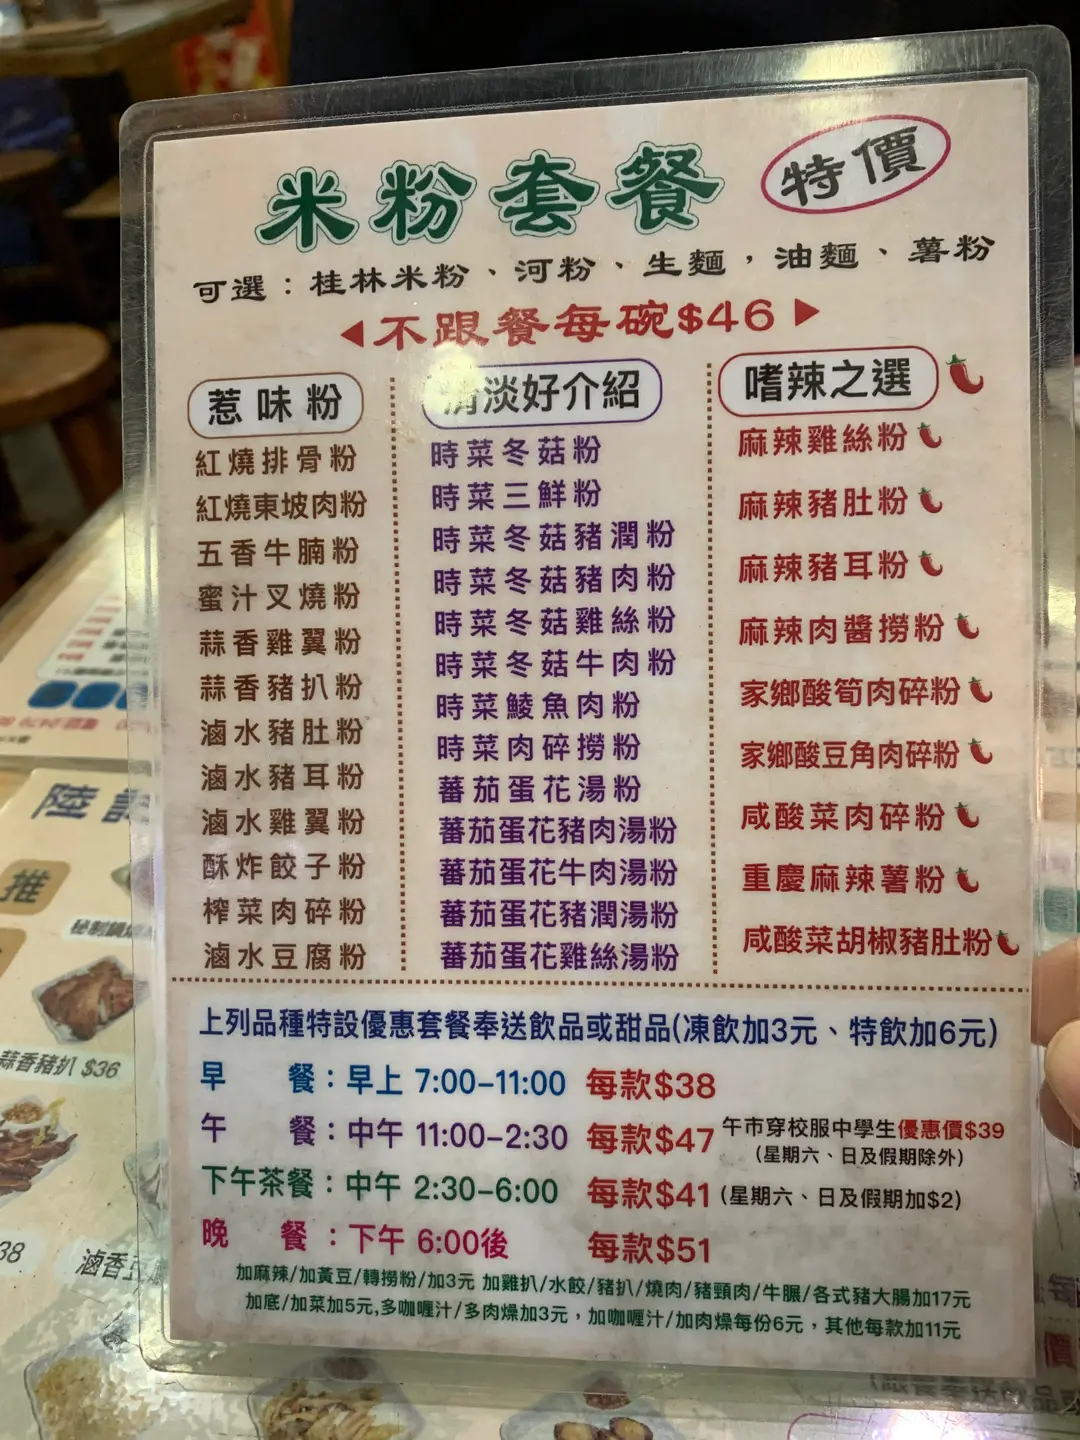 米粉套餐 特價
可選：桂林米粉、河粉、生麵，油麵、薯粉
◀不跟餐每碗$46▶
惹味粉
紅燒排骨粉
紅燒東坡肉粉
五香牛腩粉
蜜汁叉燒粉
蒜香雞翼粉
蒜香豬扒粉
滷水豬肚粉
滷水豬耳粉
滷水雞翼粉
酥炸餃子粉
榨菜肉碎粉
滷水豆腐粉
清淡好介紹
時菜冬菇粉
時菜三鮮粉
時菜冬菇豬潤粉
時菜冬菇豬肉粉
時菜冬菇雞絲粉
時菜冬菇牛肉粉
時菜鯪魚肉粉
時菜肉碎撈粉
蕃茄蛋花湯粉
蕃茄蛋花豬肉湯粉
蕃茄蛋花牛肉湯粉
蕃茄蛋花豬潤湯粉
蕃茄蛋花雞絲湯粉
嗜辣之選
麻辣雞絲粉
麻辣豬肚粉
麻辣豬耳粉
麻辣肉醬撈粉
家鄉酸筍肉碎粉
家鄉酸豆角肉碎粉
咸酸菜肉碎粉
重慶麻辣薯粉
咸酸菜胡椒豬肚粉
上列品種特設優惠套餐奉送飲品或甜品(凍飲加3元、特飲加6元)
早 餐：早上 7:00-11:00 每款$38
午 餐：中午 11:00-2:30 每款$47 午市穿校服中學生優惠價$39
(星期六、日及假期除外)
下午茶餐：中午 2:30-6:00 每款$41 (星期六、日及假期加$2)
晚 餐：下午 6:00後 每款$51
加麻辣/加黃豆/轉撈粉/加3元 加雞扒/水餃/豬扒/燒肉/豬頸肉/牛𦟌/各式豬大腸加17元
加底/加菜加5元,多咖喱汁/多肉燥加3元，加咖喱汁/加肉燥每份6元，其他每款加11元
陸
推
蒜香豬扒 $36
38
滷香豆